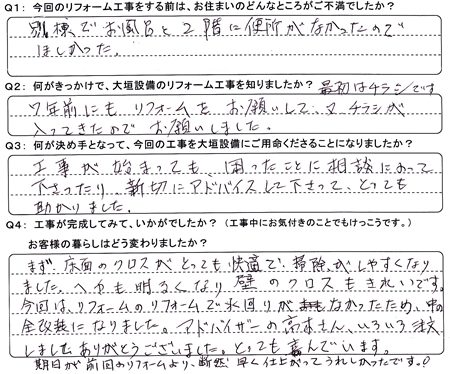 Q1: 今回のリフォーム工事をする前は、お住まいのどんなところがご不満でしたか?
別棟でお風呂と2階に便所がなかったので
ほしかった。
Q2: 何がきっかけで、大垣設備のリフォーム工事を知りましたか? 最初はチラシです
7年前にもリフォームをお願いして、又チラシが
入ってきたのでお願いしました。
Q3: 何が決め手となって、今回の工事を大垣設備にご用命くださることになりましたか?
工事が始まっても、困ったことに相談にのって
下さったり、新切にアドバイスして下さって、とっても
助かりました。
Q4: 工事が完成してみて、いかがでしたか? (工事中にお気付きのことでもけっこうです。)
お客様の暮らしはどう変わりましたか?
まず床面のクロスがとっても快適で、掃除がしやすくなり
ました。へやも明るくなり壁のクロスもきれいです。
今回は、リフォームのリフォームで水回りがなかったため、中の
全改装になりました。アドバイザーの高木さん、いろいろ注
しましたありがとうございました。とっても喜んでいます。
期日が前回のリフォームより、断然早く仕上がってうれしかったです。!